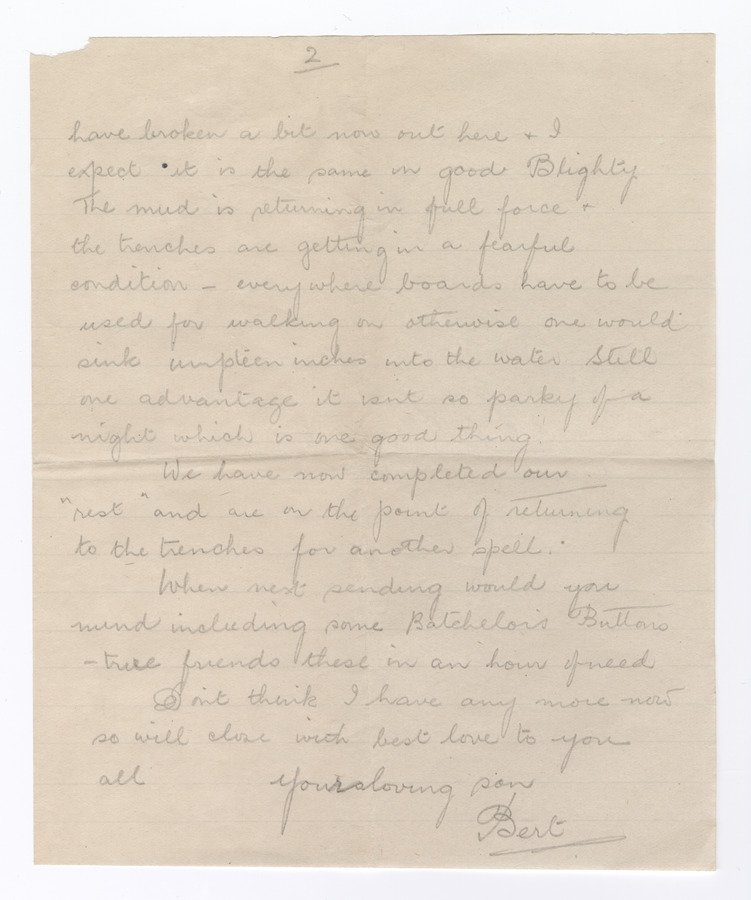 2
have broken a bit now out here + I
expect it is the same in good Blighty
The mud is returning in full force +
the trenches are getting in a fearful
condition – everywhere boards have to be
used for walking on otherwise one would
sink umpteen inches into the water Still
one advantage it isnt so parky of a
night which is one good thing.
We have now completed our
"rest" and are on the point of returning
to the trenches for another spell.
When next sending would you
mind including some Batchelors Buttons
– true friends these in an hour of need
Dont think I have any more now
so will close with best love to you
all Your loving son
Bert